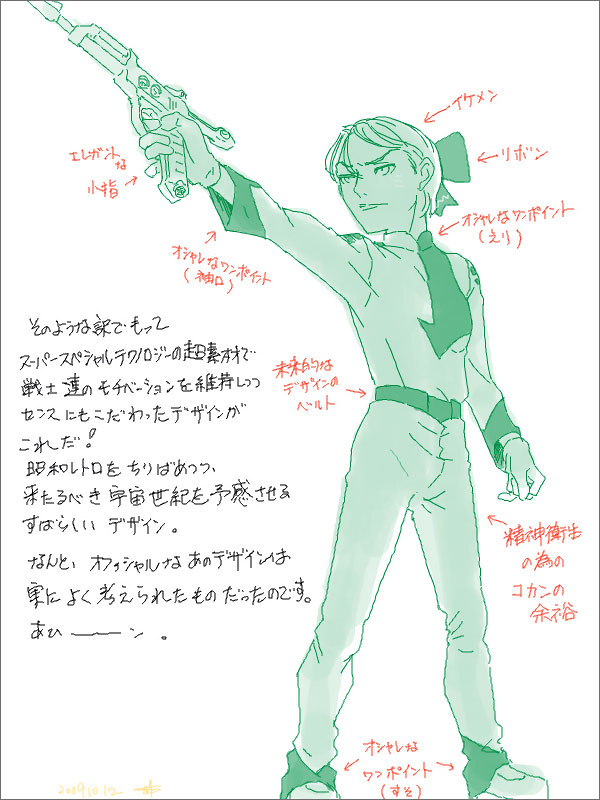 イケメン
リボン
エレガントな
小指
オシャレなワンポイント
(えり)
オシャレなワンポイント
(袖口)
そのような訳でもって
スーパースペシャルテクノロジーの超素材で
戦士達のモチベーションを維持しつつ
センスにもこだわったデザインが
これだ!
昭和レトロをちりばめつつ、
来たるべき宇宙世紀を予感させる
すばらしいデザイン。
なんと、オフィシャルなあのデザインは
実によく考えられたものだったのです。
あひーーーン。
未来的な
デザインの
ベルト
精神衛生
の為の
コカンの
余裕
オシャレな
ワンポイント
(すそ)
2009.10.12